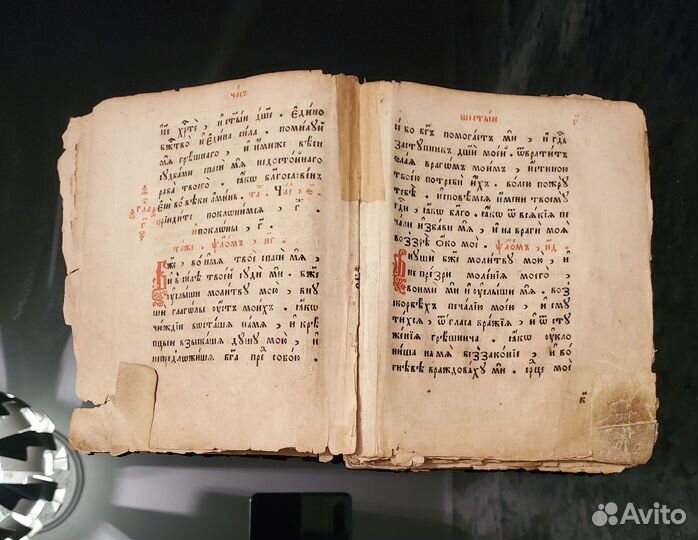 часъ
їсе хрⷭ҇те , и ст҃ыи дш҃е . Едино
бж҃тво и Едина сила . помилуй
мѧ грѣшнаго , и имиже вѣси
судбами спаси мѧ недостойнаго
раба твоего . ꙗко блг҃ословенъ
Еси во вѣки аминь .
прїидите поклонимсѧ , г҃ .
и поклоны , г҃ .
таже . ѱаломъ , н҃г
Бж҃е , во имѧ твое спаси мѧ ,
и в силѣ твоей суди ми . бж҃е
услыши молитву мою , вну
ши глаголы устъ моихъ . ꙗко
чюждїи восташа на мѧ , и крѣ
пцыи взыскаша душу мою .
и непредложиша бг҃а пред собою .
шестыи
се бо бг҃ъ помогаетъ ми , и гдⷭ҇ь
заступникъ души моей . ѿвратитъ
злаѧ врагомъ моимъ , истиною
твоею потреби ихъ . волею пожру
тебѣ . исповѣмсѧ имени твоему
гдⷭ҇и , ꙗко благо . ꙗко ѿ всѧкїѧ пе
чали избави мѧ , и на враги моѧ
воззрѣ око мое . ѱаломъ , н҃д .
Внуши бж҃е молитву мою , и
не презри моленїѧ моего ,
вонми ми и услыши мѧ . воз
скорбѣхъ печалїю моею , и сму
тихсѧ , ѿ гласа вражїѧ , и ѿ сту
женїѧ грѣшнича . ꙗко укло
ниша на мѧ беззаконїе , и во
гнѣвѣ враждоваху ми . срⷣце мое
к
Avito